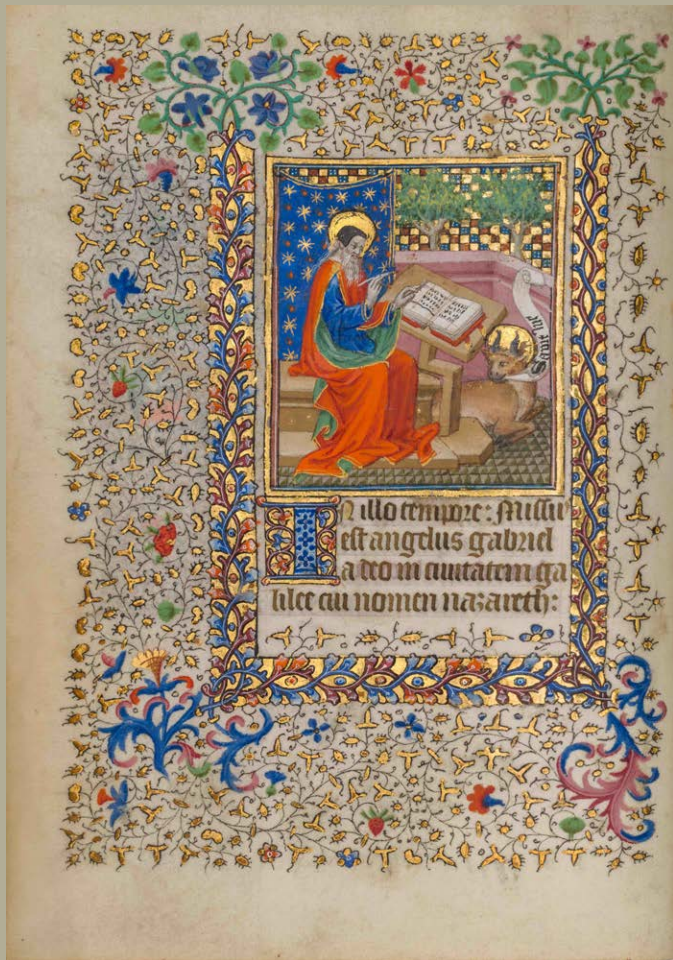 IN illo tempore: Missu
est angelus gabriel
a deo in ciuitatem ga
lilee cui nomen nazareth: